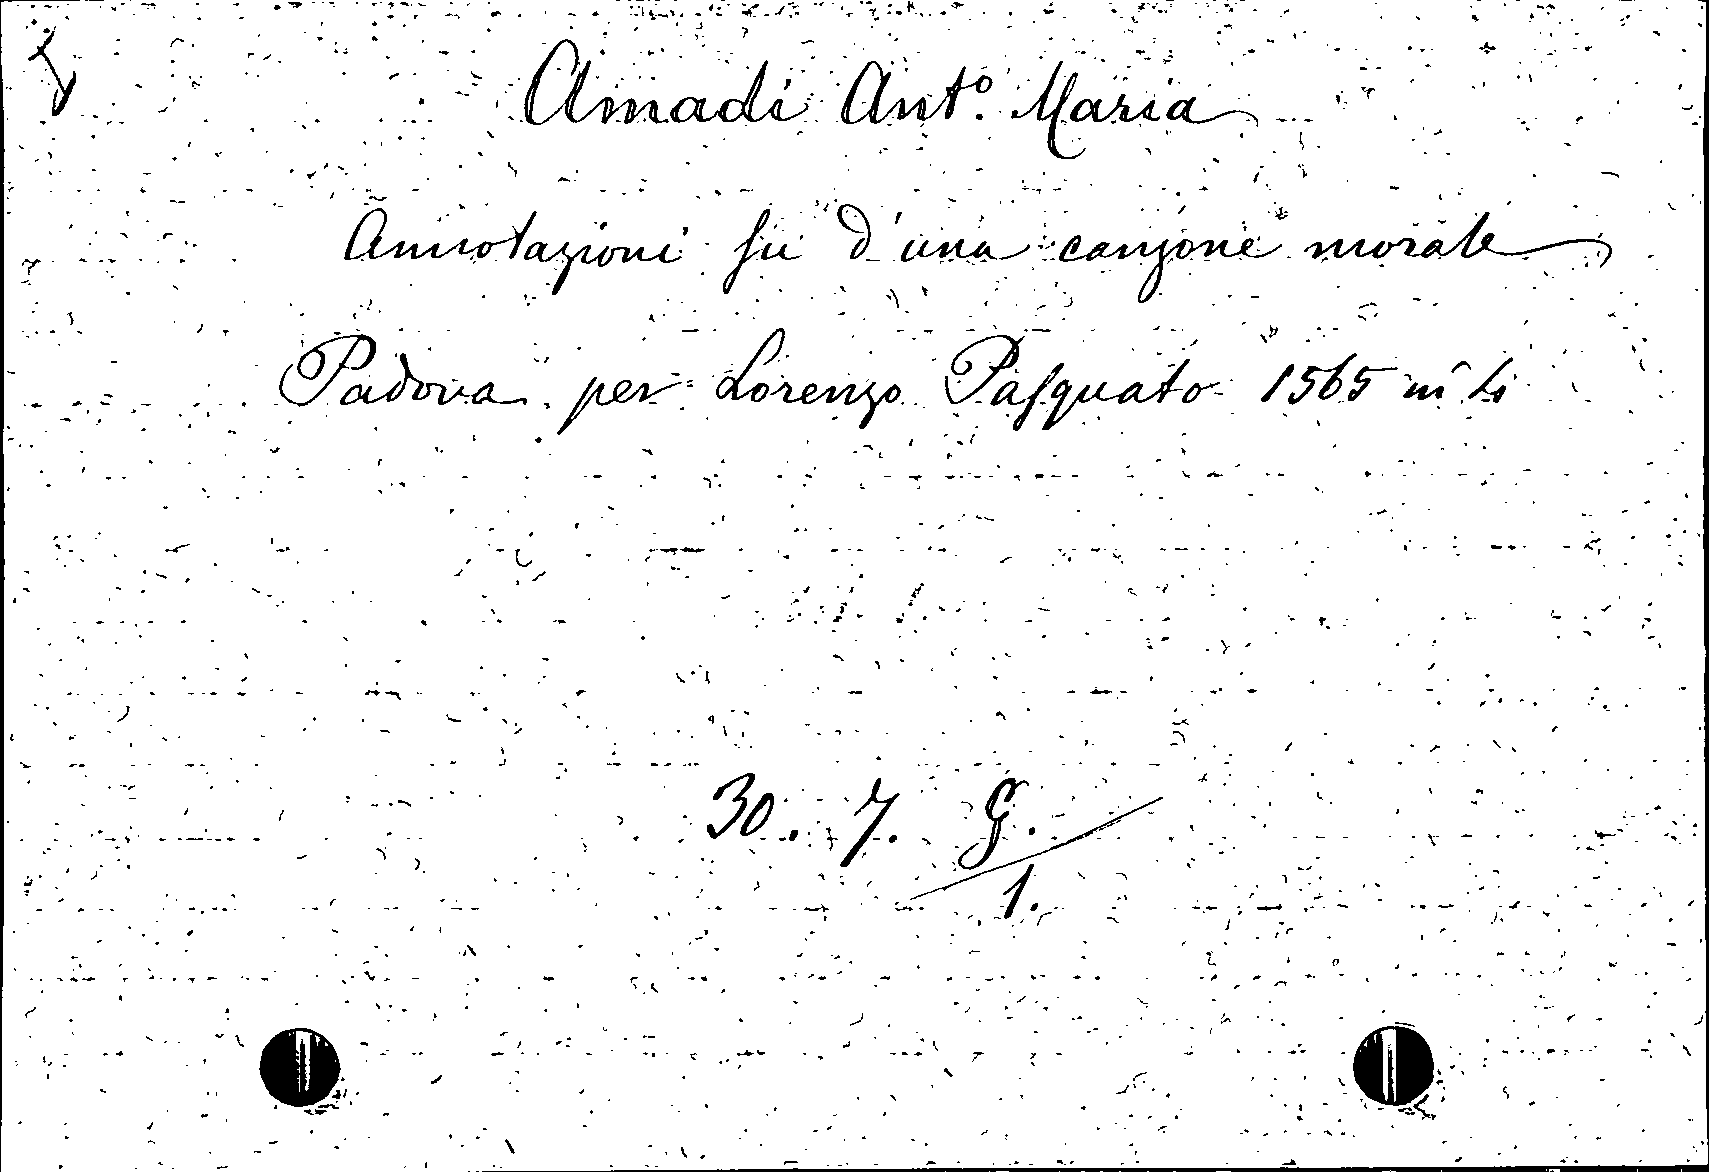 Amadi Ant.º Maria
Annotazioni su d'una canzone morale
Padova per Lorenzo Pasquato 1565 in 4º
30. 7. G.
1.